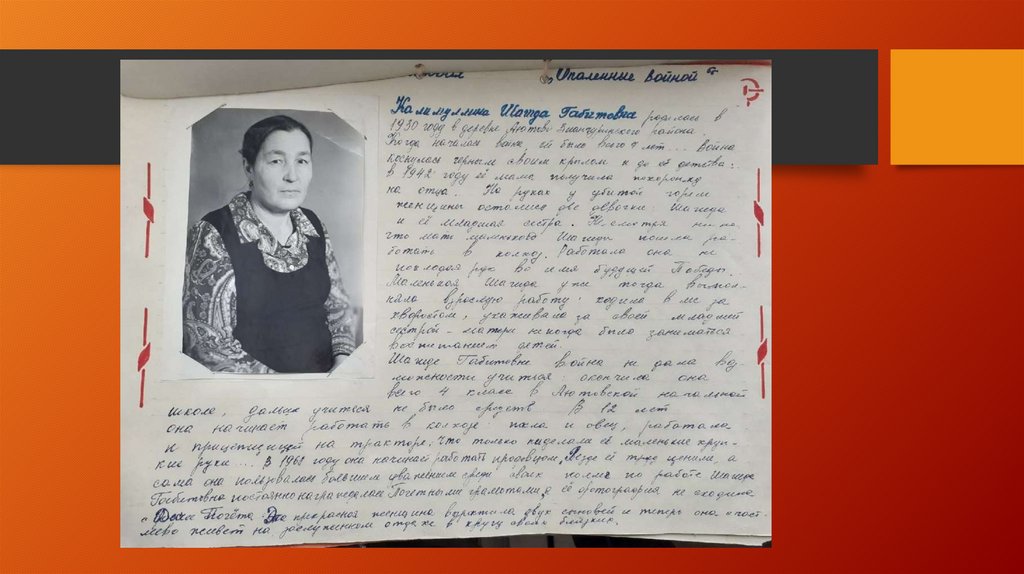 „Опаленные войной“
Калимуллина Шагида Габитовна родилась в
1930 году в деревне Аютово района.
Когда началась война ей было всего лет... Война
коснулась чёрным своим крылом и до её детства:
в 1942 году её мама получила похоронку
на отца. На руках у убитой горем
женщины остались две девочки: Шагида
и её младшая сестра. Несмотря на
что мать Шагиды пошла ра-
ботать в колхоз. Работала она не
рук во имя будущей Победы.
Маленькая Шагида уже тогда выпол-
няла взрослую работу: ходила в лес за
хворостом, ухаживала за своей младшей
сестрой - матери некогда было заниматся
воспитанием детей.
Шагиде Габитовне война не дала воз-
можности учиться окончила она
всего 4 класса в Аютовской начальной
школе, дальше учиться не было средств В 12 лет
она начинает работать в колхозе: пасла и овец, работала
и прицепщицей на тракторе. Что только наделали её маленькие хруп-
кие руки... В 1968 году она начинает работать продавцом. Везде её труд ценили, а
сама она пользовалась большим уважением среди своих коллег по работе Шагида
Габитовна постоянно награждалась Почётными грамотами, а её фотография не сходила
с Доски Почёта. Эта прекрасная женщина вырастила двух сыновей и теперь она счаст-
ливо живёт на заслуженном отдыхе в кругу своих близких.